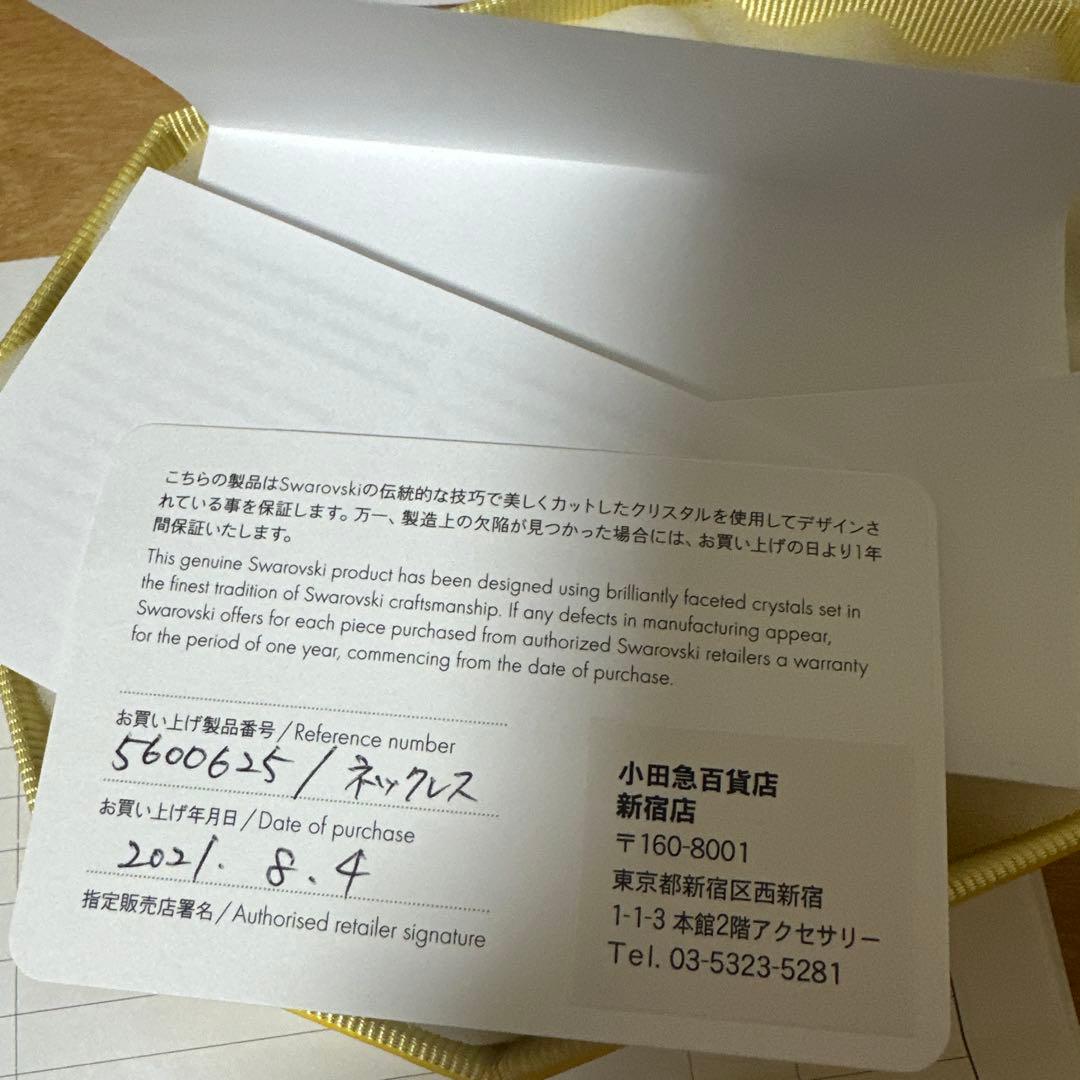 こちらの製品はSwarovskiの伝統的な技巧で美しくカットしたクリスタルを使用してデザインさ
れている事を保証します。万一、製造上の欠陥が見つかった場合には、お買い上げの日より1年
間保証いたします。
This genuine Swarovski product has been designed using brilliantly faceted crystals set in
the finest tradition of Swarovski craftsmanship. If any defects in manufacturing appear,
Swarovski offers for each piece purchased from authorized Swarovski retailers a warranty
for the period of one year, commencing from the date of purchase.
お買い上げ製品番号/Reference number
5600625/ネックレス
お買い上げ年月日/Date of purchase
2021. 8. 4
指定販売店署名/Authorised retailer signature
小田急百貨店
新宿店
〒160-8001
東京都新宿区西新宿
1-1-3 本館2階アクセサリー
Tel. 03-5323-5281